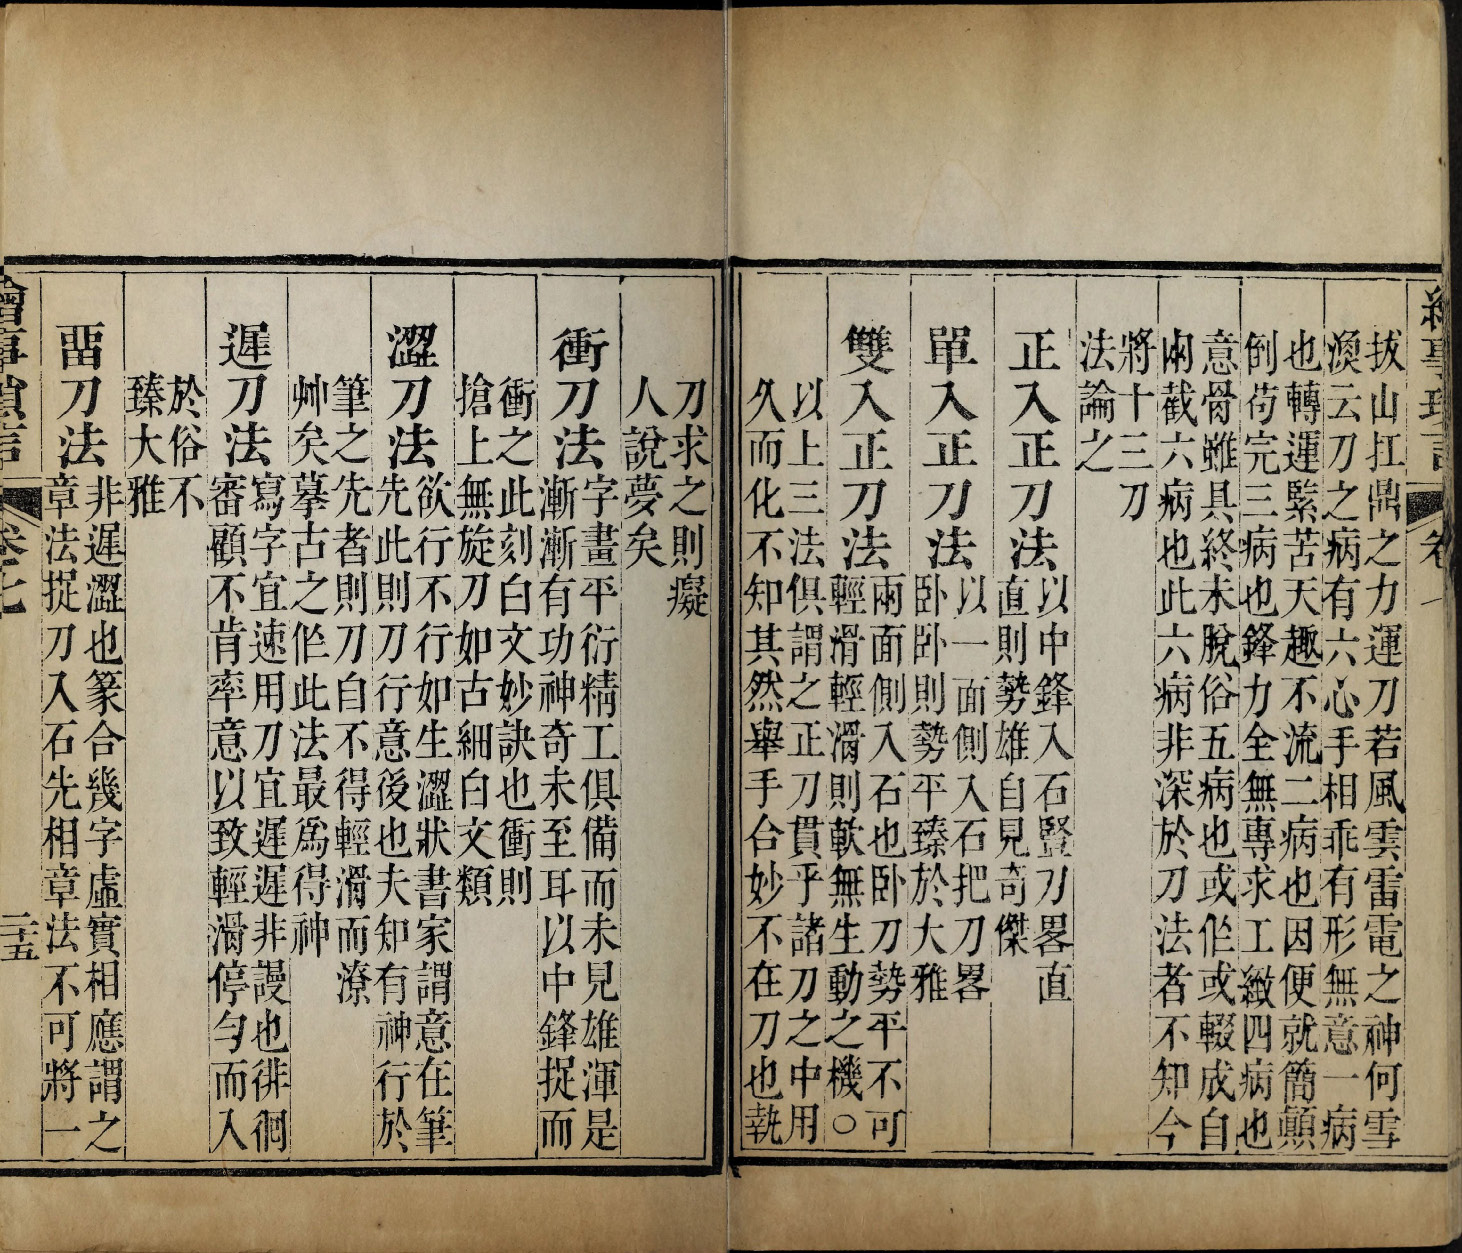 繪事瑣言
卷
拔山扛鼎之力運刀若風雲雷電之神何雪
漁云刀之病有六心手相乖有形無意一病
也轉運緊苦天趣不流二病也因便就簡顛
倒苟完三病也鋒力全無專求工緻四病也
意骨雖具終未脫俗五病也或作或輟成自
兩截六病也此六病非深於刀法者不知今
將十三刀
法論之
正入正刀法
以中鋒入石豎刀畧直
直則勢雄自見奇傑
單入正刀法
以一面側入石把刀畧
卧卧則勢平臻於大雅
雙入正刀法
兩面側入石也卧刀勢平不可
輕滑輕滑則軟無生動之機○
以上三法俱謂之正刀貫乎諸刀之中用
久而化不知其然舉手合妙不在刀也執
刀求之則癡
人說夢矣
衝刀法
字畫平衍精工俱備而未見雄渾是
漸漸有功神奇未至耳以中鋒捉而
衝之此刻白文妙訣也衝則
搶上無旋刀如古細白文類
澀刀法
欲行不行如生澀狀書家謂意在筆
先此則刀行意後也夫知有神行於
筆之先者則刀自不得輕滑而潦
艸矣摹古之作此法最爲得神
遲刀法
寫字宜速用刀宜遲遲非謾也徘徊
審顧不肯率意以致輕滑停勻而入
於俗不
臻大雅
畱刀法
非遲澀也篆合幾字虛實相應謂之
章法捉刀入石先相章法不可將一
繪事瑣言
卷七
二十五